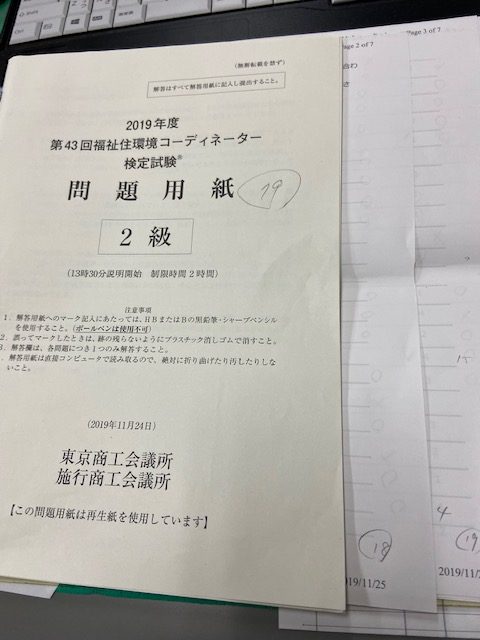 (無断転載を禁ず)
解答はすべて解答用紙に記入し提出すること。
2019年度
第43回福祉住環境コーディネーター
検定試験®
問題用紙
19
2級
(13時30分説明開始 制限時間2時間)
注意事項
1．解答用紙へのマーク記入にあたっては、HBまたはBの黒鉛筆・シャープペンシル
を使用すること。(ボールペンは使用不可)
2．誤ってマークしたときは、跡の残らないようにプラスチック消しゴムで消すこと。
3．解答欄は、各問題につき1つのみ解答すること。
．解答用紙は直接コンピュータで読み取るので、絶対に折り曲げたり汚したりしな
いこと。
(2019年11月24日)
東京商工会議所
施行商工会議所
【この問題用紙は再生紙を使用しています】
Page 2 of 7
合わ
さ
18
19/11/25
Page 3 of 7
15
4
19
2019/11/